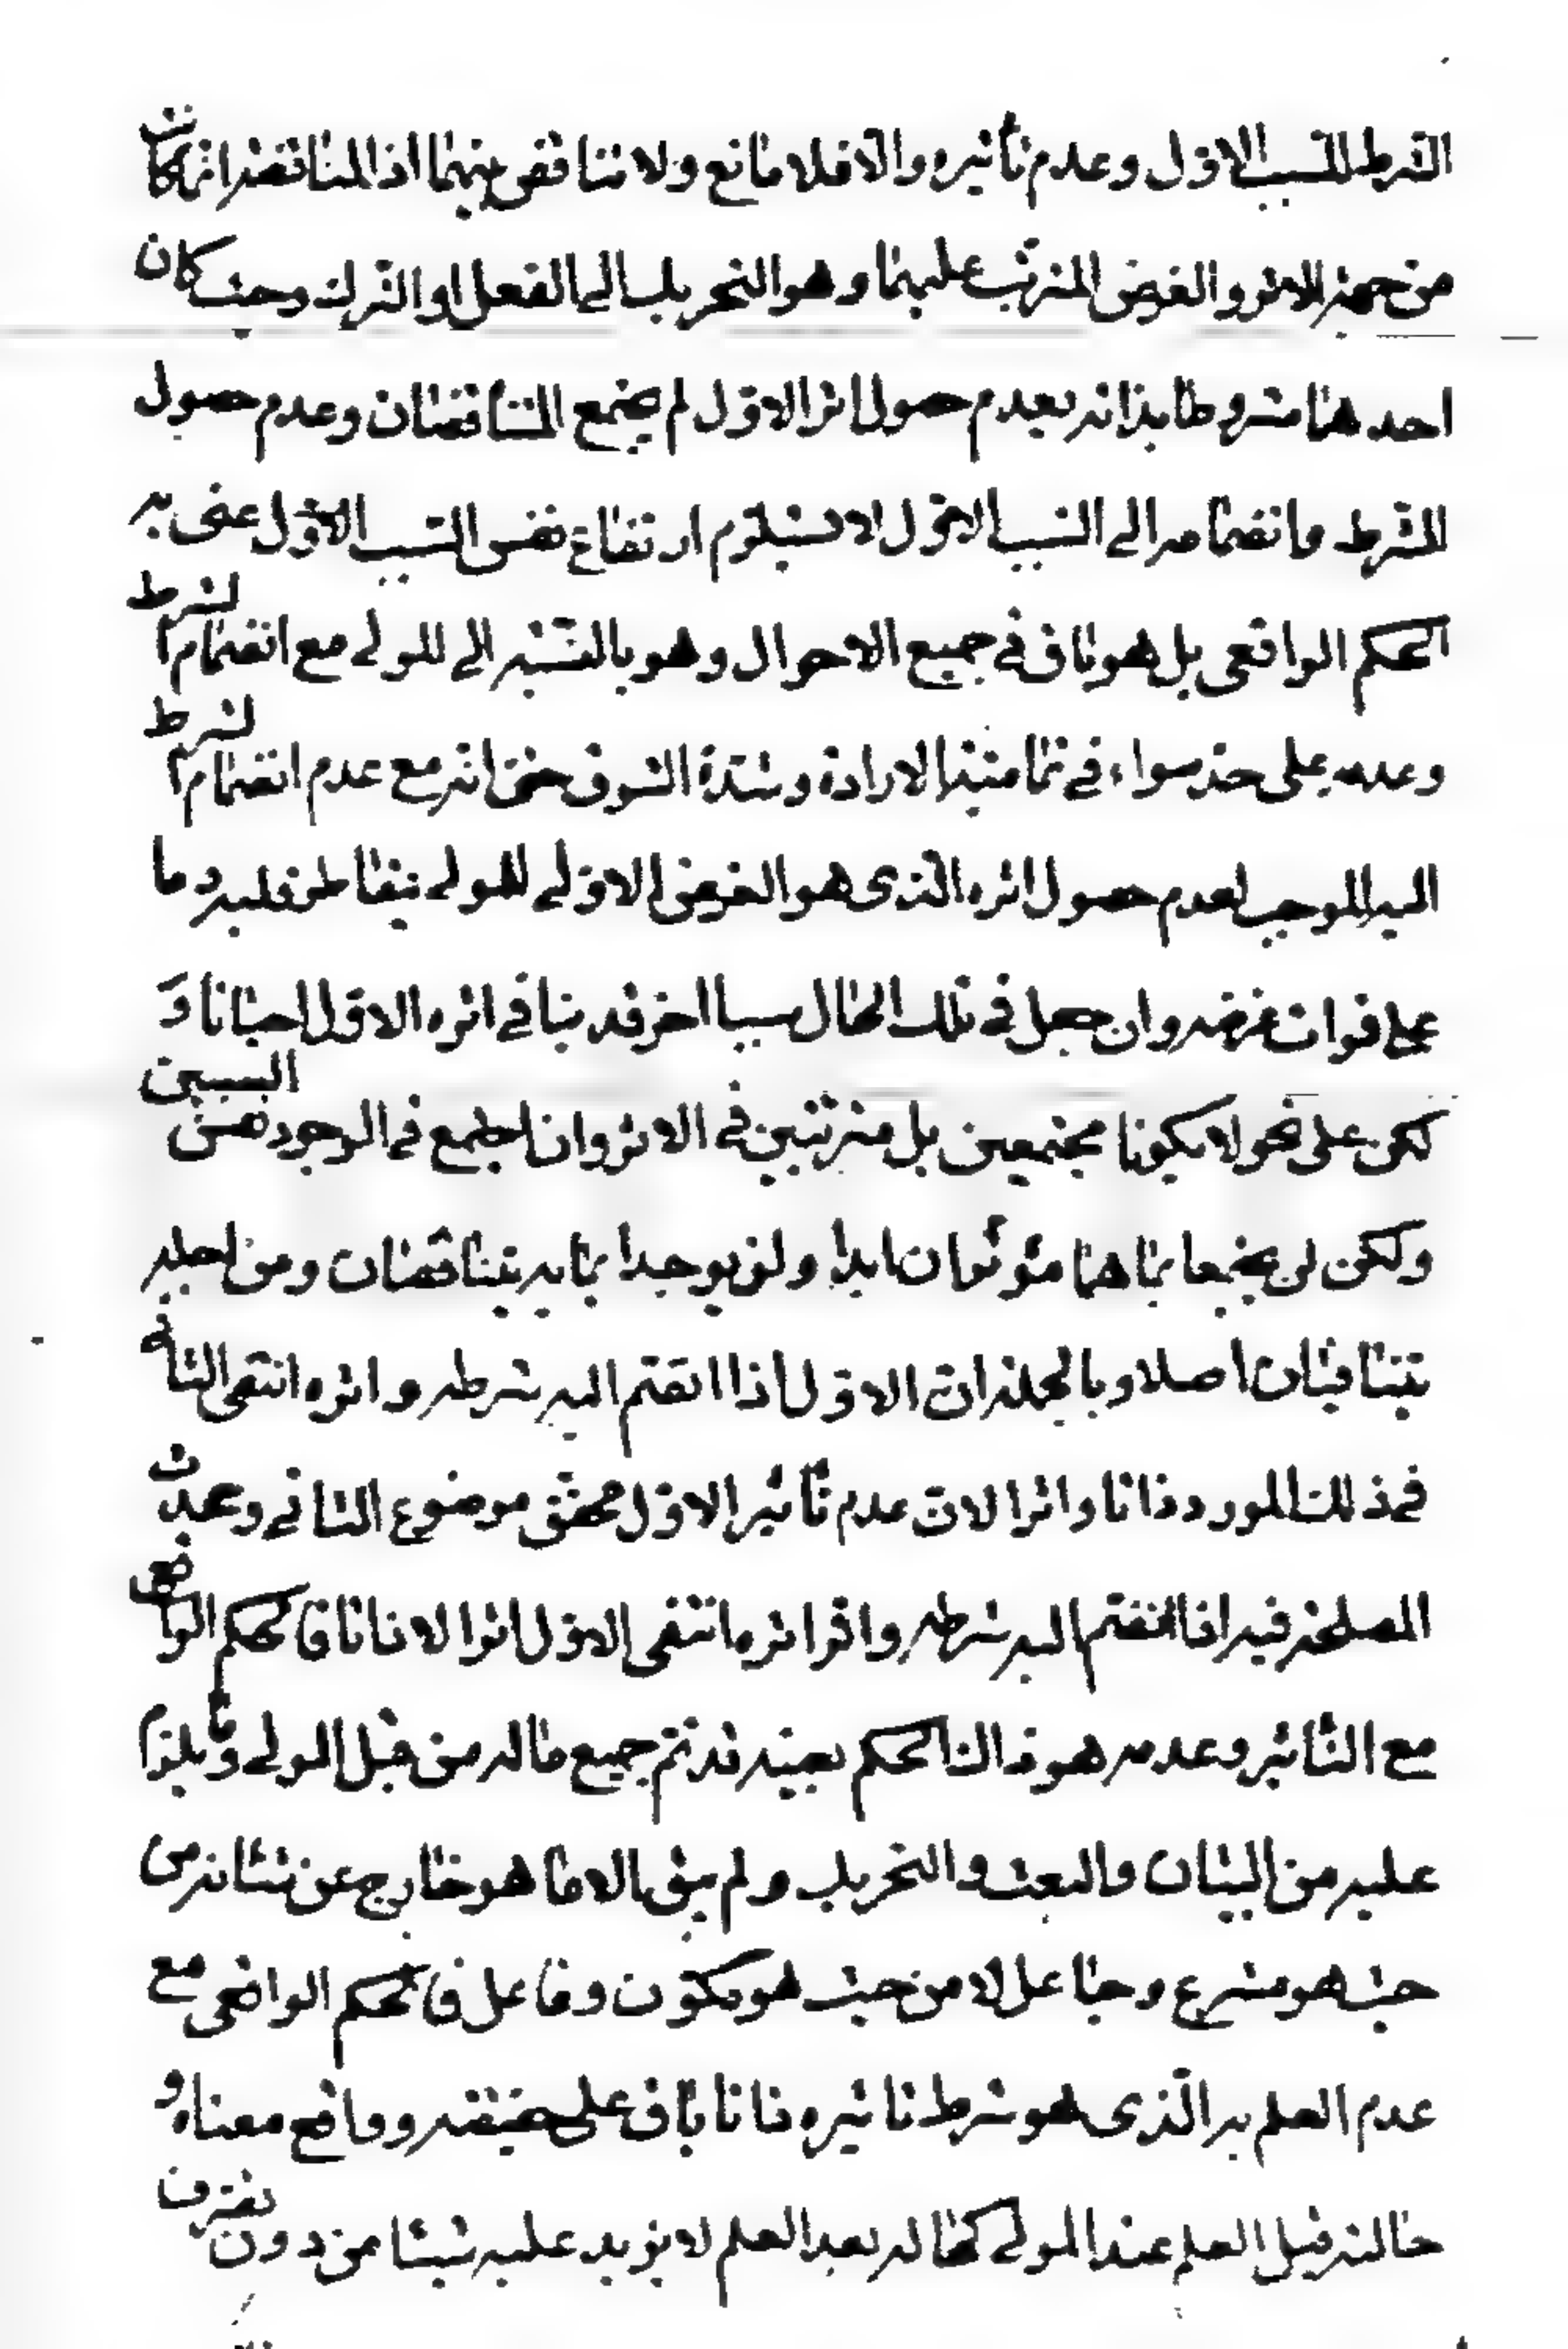 الشرط للسبب الاوّل وعدم تأثيره والّا فلا مانع ولا تناقض بينهما اذ المناقضة انّما كانت
من جهة الاثر والغرض المترتّب عليهما وهو التحريك الى الفعل او التّرك وحيث كان
احدهما مشروطا بذاته بعدم حصول اثر الاوّل لم يجتمع المتناقضان وعدم حصول
الشّرط وانضمامه الى السّبب الاوّل لا يستلزم ارتفاع نفس السّبب الاوّل عنى به
الحكم الواقعى بل هو باق فى جميع الاحوال وهو بالنّسبة الى المولى مع انضمام الشرط
وعدمه على حدّ سواء فى تماميّة الارادة وشدّة الشوق حتى انّه مع عدم انضمام الشرط
اليه الموجب لعدم حصول اثره الّذى هو الغرض الاوّلى للمولى يتفاطر قلبه دما
على فوات غرضه وان جعل فى تلك الحال سببا اخر قد ينافى اثره الاوّل احيانا و
لكن على نحو لا يكونا مجتمعين بل مترتّبين فى الاثر وان اجتمع فى الوجود نفس السببين
ولكن لن يجتمعا بما هما مؤثّران ابدا ولن يوجدا بما به يتناقضان ومن اجله
يتنافيان اصلا وبالجملة انّ الاوّل اذا انضمّ اليه شرطه واثره انتفى الثانى
فى ذلك المورد ذاتا واثرا لانّ عدم تأثير الاوّل محقّق موضوع الثانى وحدث
المصلحة فيه اذا انضمّ اليه شرطه واثّر اثره ما انتفى الاوّل اثرا لا ذاتا فالحكم الواقعى
مع التأثير وعدمه هو ذاك الحكم بعينه قد تمّ جميع ماله من قبل المولى وما يلزم
عليه من البيان والبعث والتحريك ولم يبق الا ما هو خارج عن شانه من
حيث هو مشرع وجاعل لا من حيث هو مكوّن وفاعل فالحكم الواقعى مع
عدم العلم به الّذى هو شرط تاثيره ذاتا باق على حقيقته وواقع معناه و
حالته قبل العلم عند المولى كحاله بعد العلم لا يزيد عليه شيئا من دون تفرق